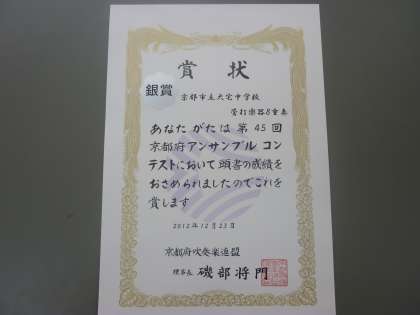 賞状
銀賞
京都市立大宅中学校
管打楽器8重奏
あなたがたは第45回
京都府アンサンブルコン
テストにおいて頭書の成績を
おさめられましたのでこれを
賞します
2012年12月23日
京都府吹奏楽連盟
理事長 磯部将門